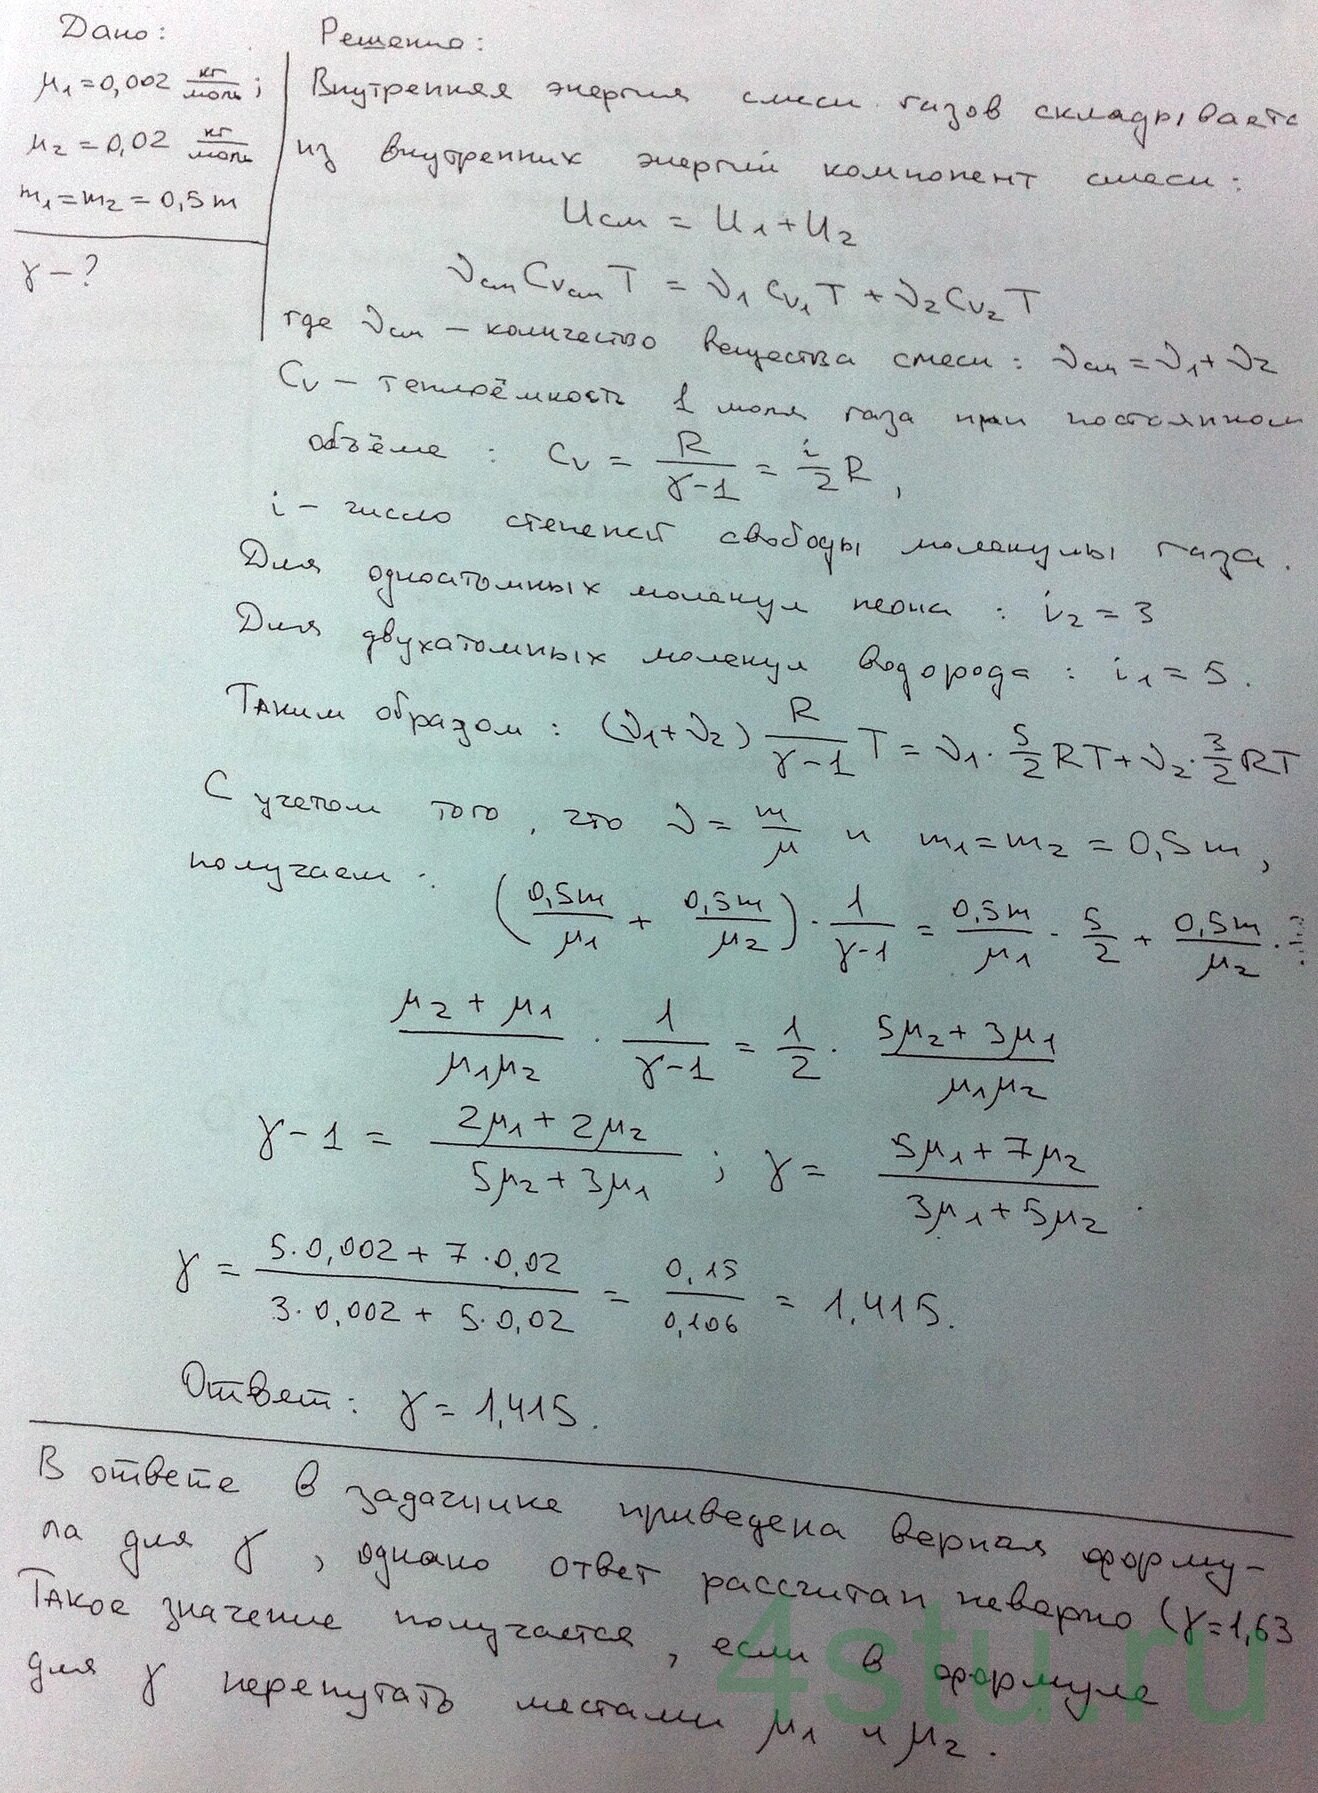 Дано:
μ₁ = 0,002 кг/моль;
μ₂ = 0,02 кг/моль
m₁ = m₂ = 0,5m
γ - ?
Решение:
Внутренняя энергия смеси газов складывается
из внутренних энергий компонент смеси:
Uсм = U₁ + U₂
νсм Cvсм T = ν₁ Cv₁ T + ν₂ Cv₂ T
где νсм – количество вещества смеси: νсм = ν₁ + ν₂
Cv – теплоёмкость 1 моля газа при постоянном
объёме : Cv = R/(γ-1) = i/2 R,
i – число степеней свободы молекулы газа.
Для одноатомных молекул неона : i₂ = 3
Для двухатомных молекул водорода : i₁ = 5.
Таким образом : (ν₁ + ν₂) R/(γ-1) T = ν₁ · 5/2 RT + ν₂ · 3/2 RT
С учетом того, что ν = m/μ и m₁ = m₂ = 0,5m,
получаем : (0,5m/μ₁ + 0,5m/μ₂) · 1/(γ-1) = 0,5m/μ₁ · 5/2 + 0,5m/μ₂ ·
(μ₂ + μ₁)/(μ₁μ₂) · 1/(γ-1) = 1/2 · (5μ₂ + 3μ₁)/(μ₁μ₂)
γ - 1 = (2μ₁ + 2μ₂)/(5μ₂ + 3μ₁) ; γ = (5μ₁ + 7μ₂)/(3μ₁ + 5μ₂) .
γ = (5·0,002 + 7·0,02)/(3·0,002 + 5·0,02) = 0,15/0,106 = 1,415.
Ответ: γ = 1,415.
В ответе в задачнике приведена верная форму-
ла для γ , однако ответ рассчитан неварно (γ=1,63
Такое значение получается, если в формуле
для γ перепутать местами μ₁ и μ₂.
4stu.ru